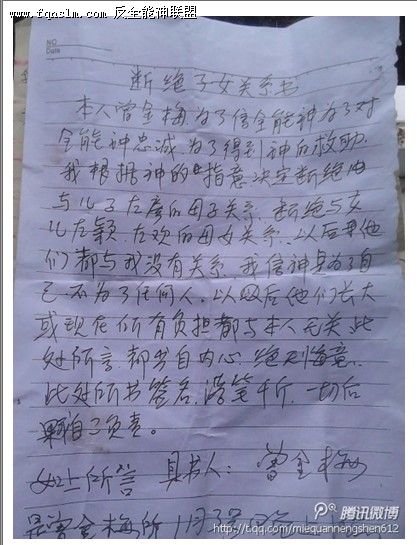 www.fqnslm.com 反全能神联盟
NO
Date
断绝子女关系书
本人曾金梅为了信全能神为了对
全能神忠诚,为了得到神的救助.
我根据神的旨意决定断绝
与儿子左 的母子关系.断绝与女
儿左颖.左欢的母女关系.以后
们都与我没有关系.我信神是为了自
己.不为了任何人.以后他们长大
或现在所有负担都与本人无关.此
处所言.都出自内心 绝
此处所书签名.落笔千斤.一切后
果自己负责。
如上所言 具书人:曾金梅
是曾金梅所
腾讯微博
http://t.qq.com/miequannengshen612